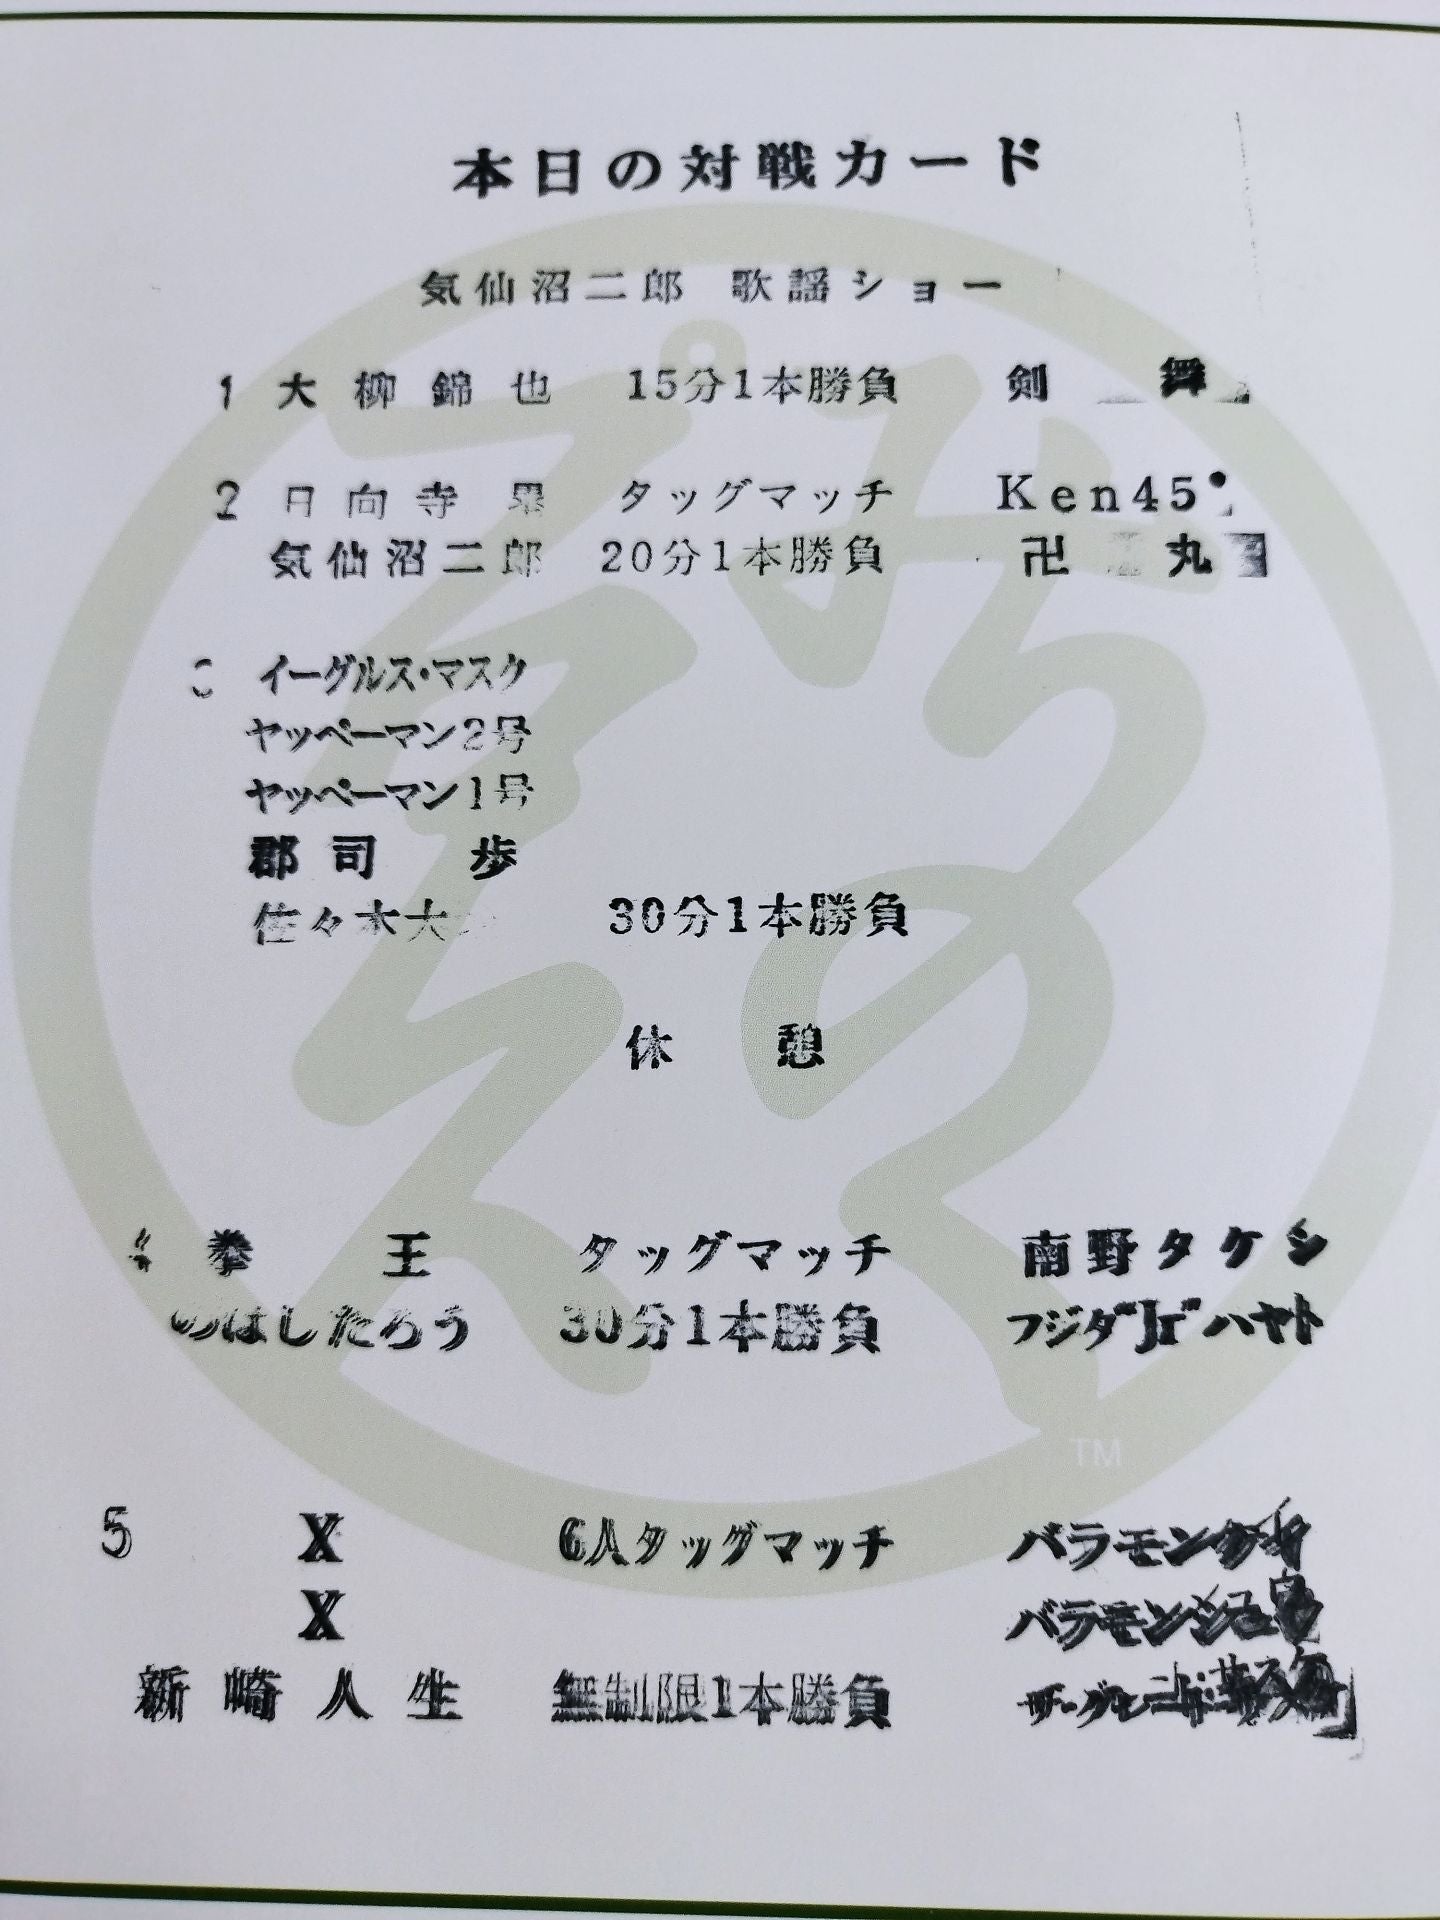 本日の対戦カード
気仙沼二郎 歌謡ショー
1 大柳錦也 15分1本勝負 剣 舞
2 日向寺塁 タッグマッチ Ken45°
気仙沼二郎 20分1本勝負 卍 丸
イーグルス・マスク
ヤッペーマン2号
ヤッペーマン1号
郡司 歩
佐々木大 30分1本勝負
休 憩
拳 王 タッグマッチ 南野タケシ
のはしたろう 30分1本勝負 フジタ"Jr"ハヤト
5 X 6人タッグマッチ バラモン
X バラモンシュウ
新崎人生 無制限1本勝負 ザ・グレート・サスケ
TM